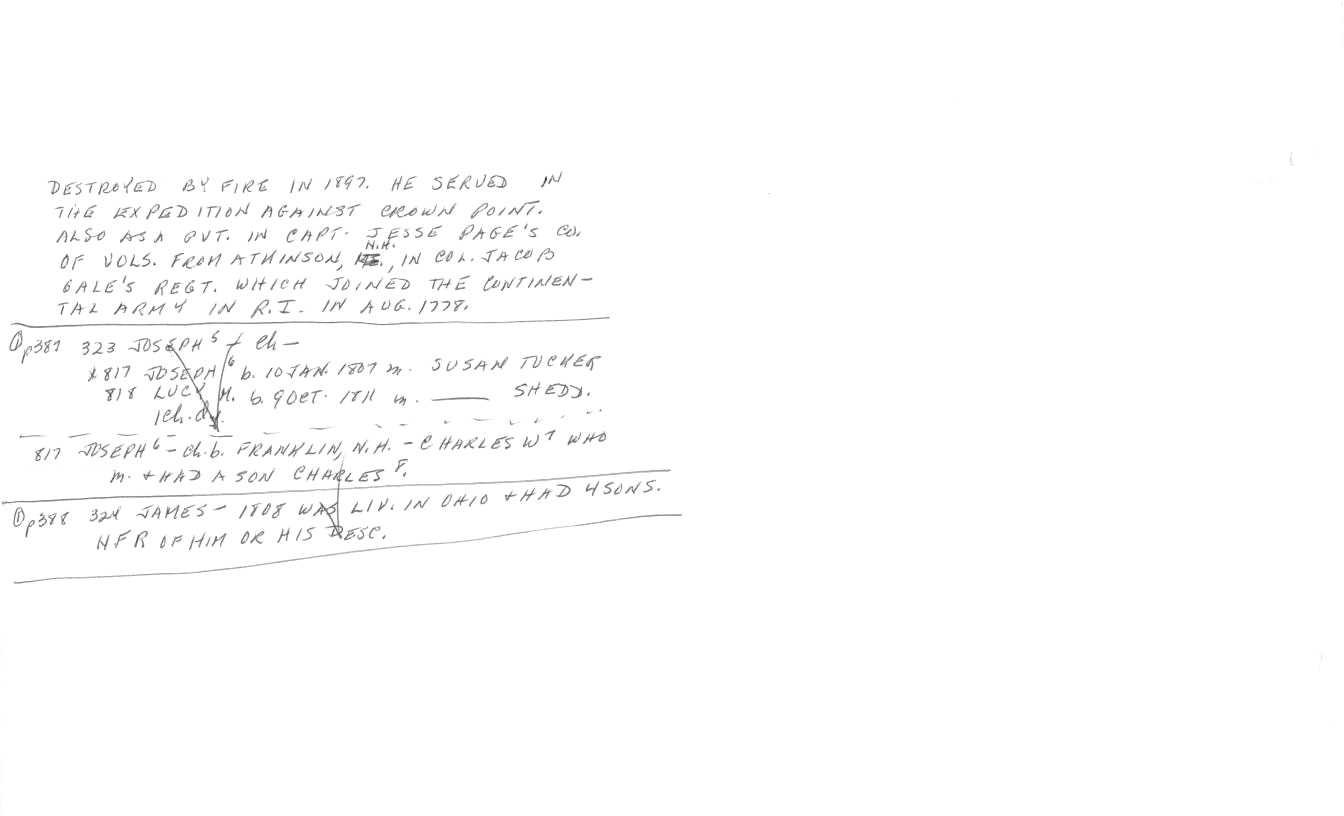 DESTROYED BY FIRE IN 1897. HE SERVED IN
THE EXPEDITION AGAINST CROWN POINT.
ALSO AS A PVT. IN CAPT. JESSE PAGE'S CO.
N.H.
OF VOLS. FROM ATKINSON, , IN COL. JACOB
GALE'S REGT. WHICH JOINED THE CONTINEN-
TAL ARMY IN R.I. IN AUG. 1778.
① p387 323 JOSEPH⁵ + Ch-
x 817 JOSEPH⁶ b. 10 JAN. 1807 m. SUSAN TUCKER
818 LUCY M. b. 9 OCT. 1811 m. ____ SHEDD.
1 ch. d.y.
817 JOSEPH⁶ - ch. b. FRANKLIN, N.H. - CHARLES W⁷ WHO
m. + HAD A SON CHARLES⁸.
① p388 324 JAMES - 1808 WAS LIV. IN OHIO + HAD 4 SONS.
NFR OF HIM OR HIS DESC.